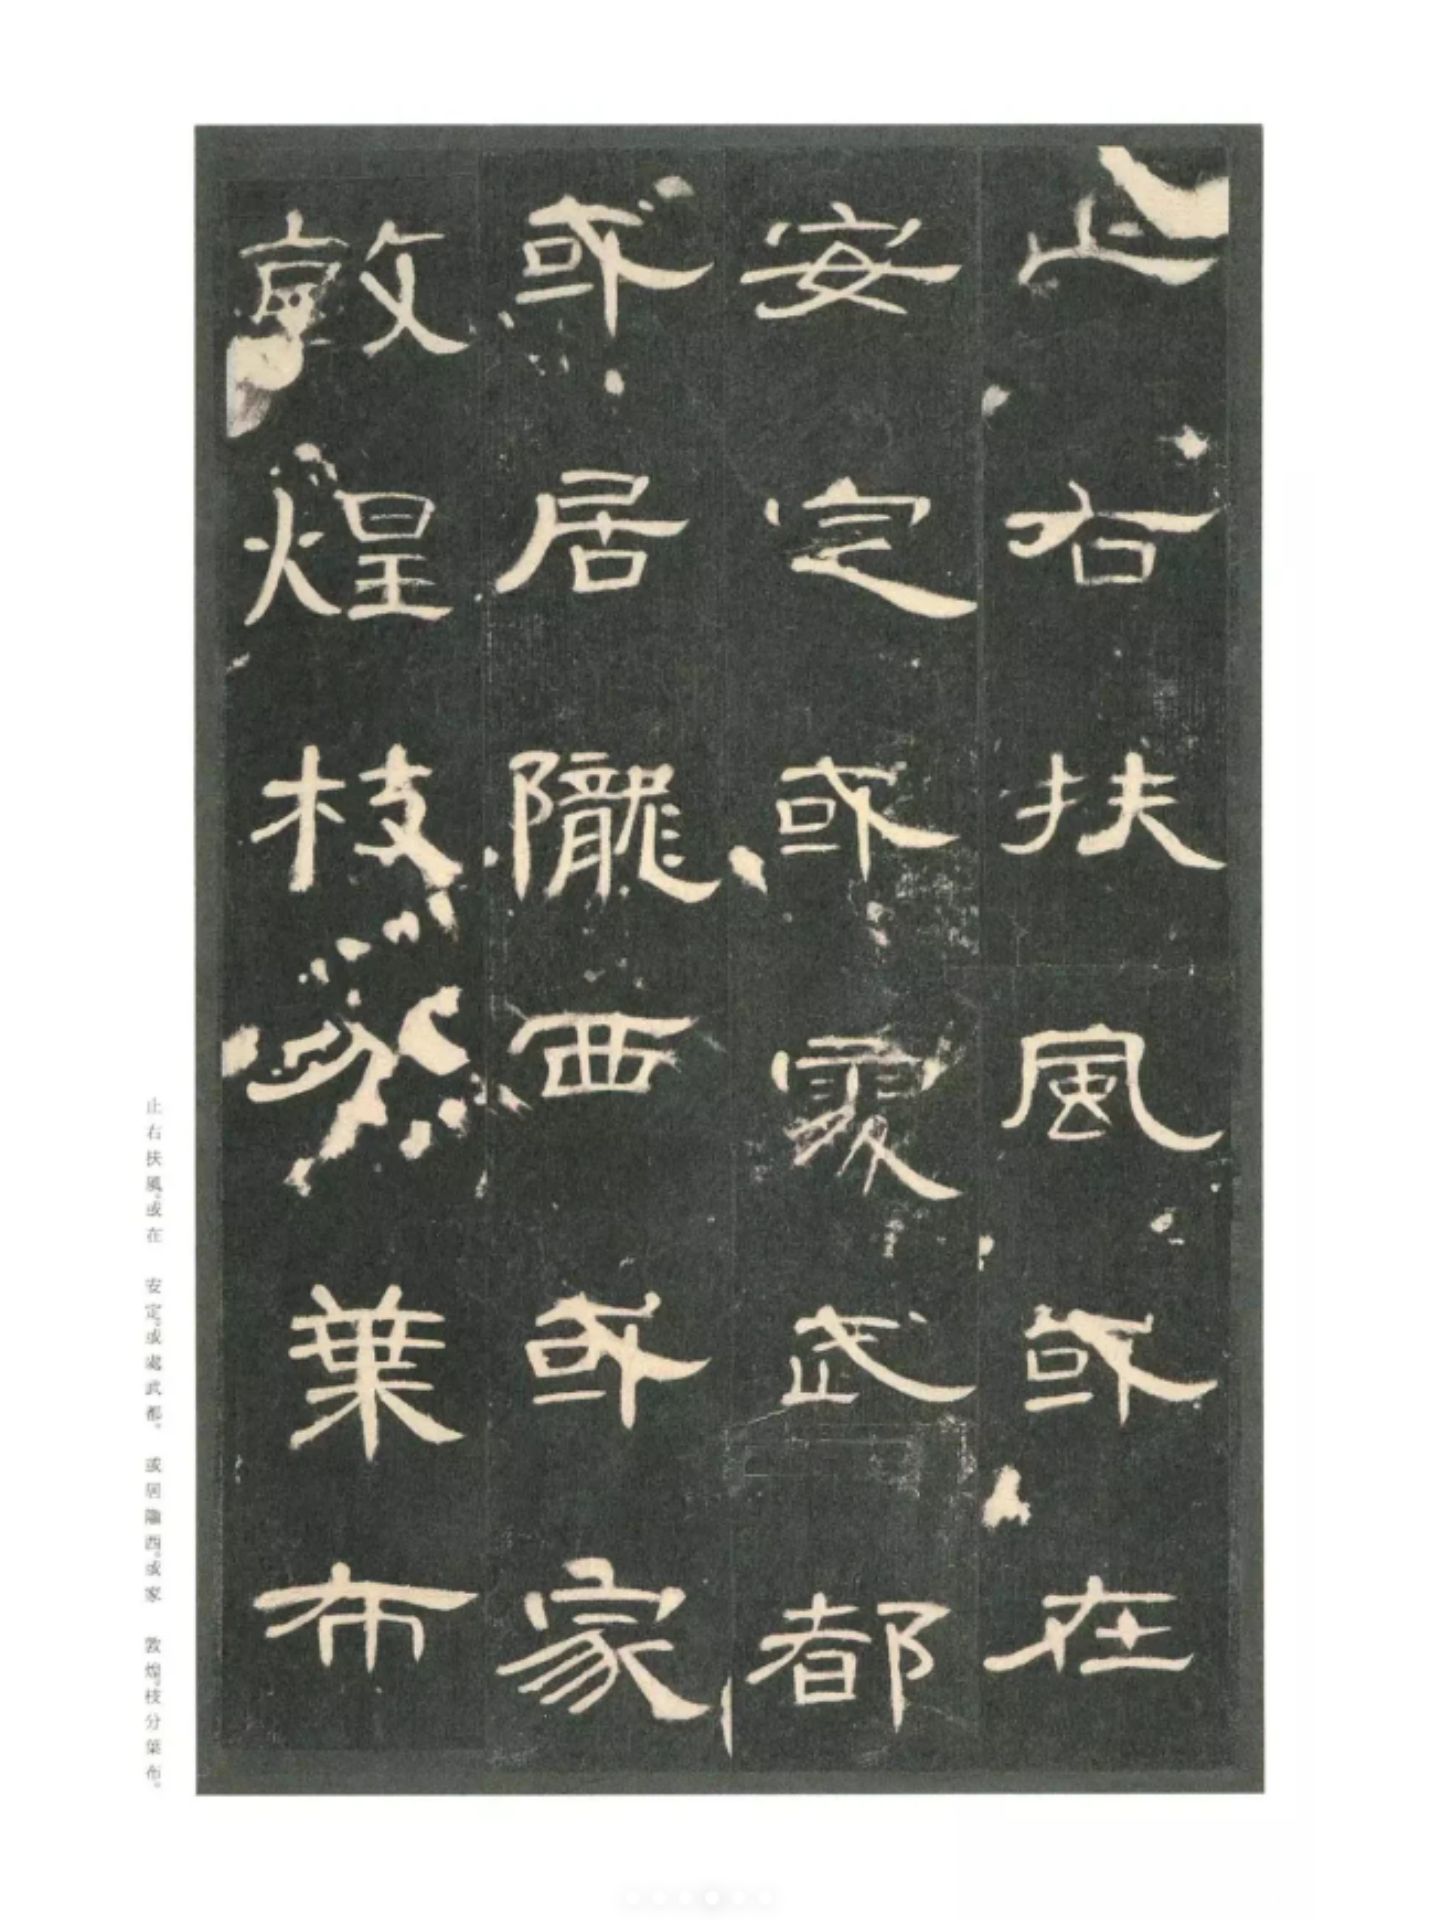 止右扶風或在
安定或處武都
或居隴西或家
敦煌枝分葉布
止右扶風。或在　安定。或處武都。　或居隴西。或家　敦煌。枝分葉布。